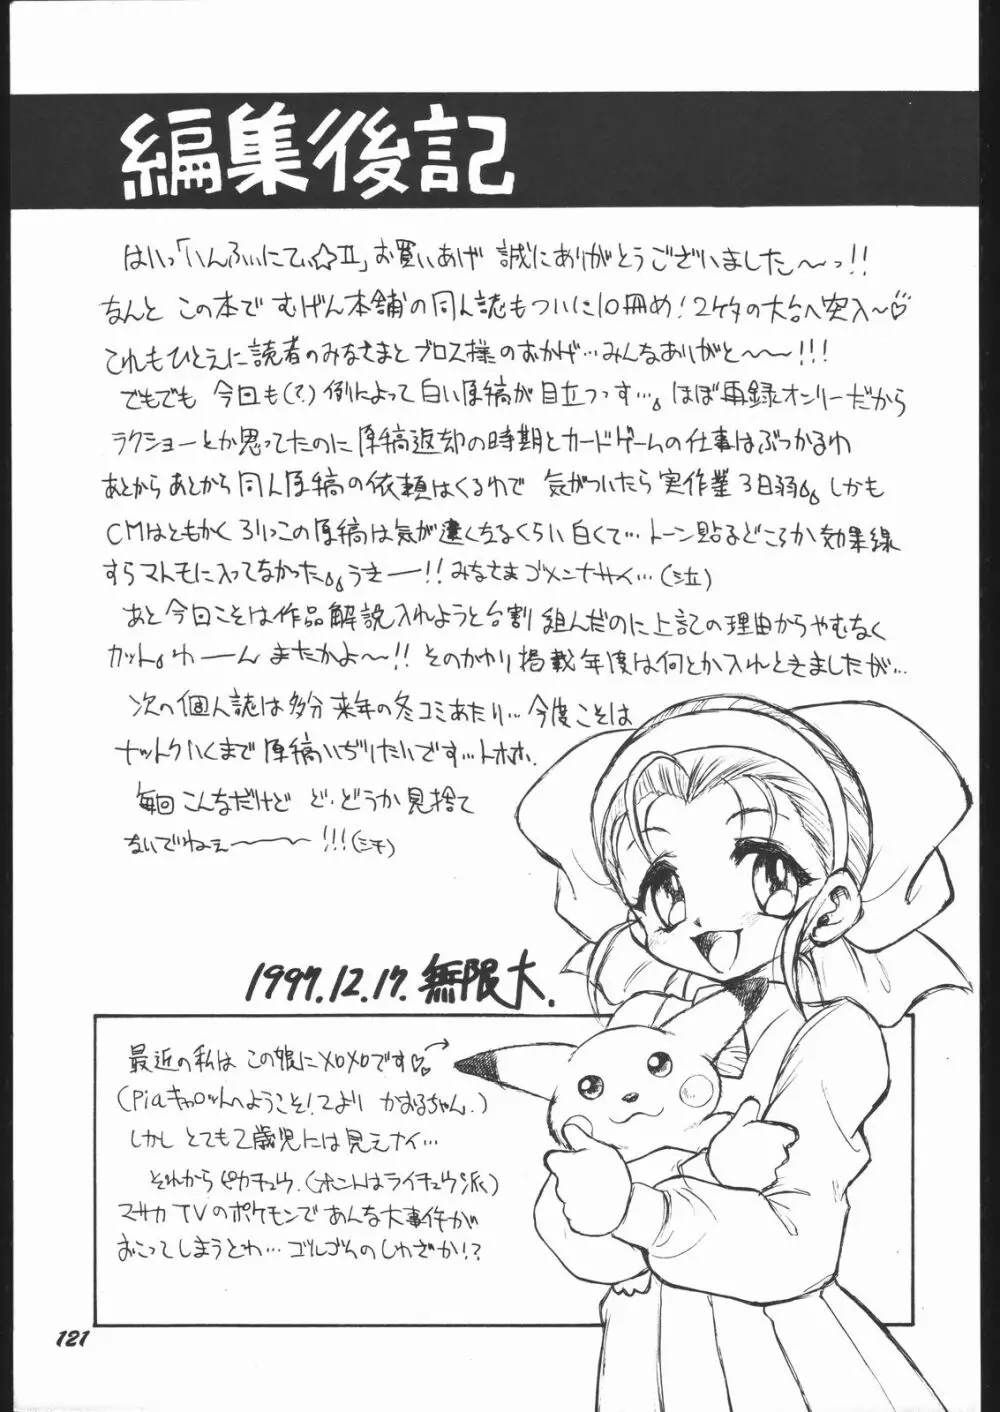 編集後記
はいっ「いんふぃにてぃ☆II」お買いあげ 誠にありがとうございました〜っ!!
なんと この本で むげん本舗の同人誌もついに10冊め!2ケタの大台へ突入〜♡
これもひとえに読者のみなさまとブロス様のおかげ…みんなありがと〜〜!!!
でもでも 今回も(?)例によって白い原稿が目立つっす…。ほぼ再録オンリーだから
ラクショーとか思ってたのに原稿返却の時期とカードゲームの仕事はぶつかるわ
あとからあとから同人原稿の依頼はくるわで 気がついたら実作業3日弱。。しかも
CMはともかく ろりっこの原稿は気が遠くなるくらい白くて…トーン貼るどころか効果線
すらマトモに入ってなかった。。うきーー!!みなさまゴメンナサイ…(泣)
あと今回こそは作品解説入れようと台割組んだのに上記の理由からやむなく
カット。わーーん またかよ〜!!そのかわり掲載年度は何とか入れときましたが…
次の個人誌は多分来年の冬コミあたり…今度こそは
ナットクいくまで原稿いぢりたいです…トホホ.
毎回こんなだけど ど・どうか見捨て
ないでねぇ〜〜〜!!!(汗)
1997.12.17.無限大.
最近の私は この娘にメロメロです♡♡→
(Piaキャロットへようこそ!2より かおるちゃん.)
しかし とても2歳児には見えナイ…
それからピカチュウ.(ホントはライチュウ派)
マサカTVのポケモンであんな大事件が
おこってしまうとわ…ゴルゴムのしわざか!?
121